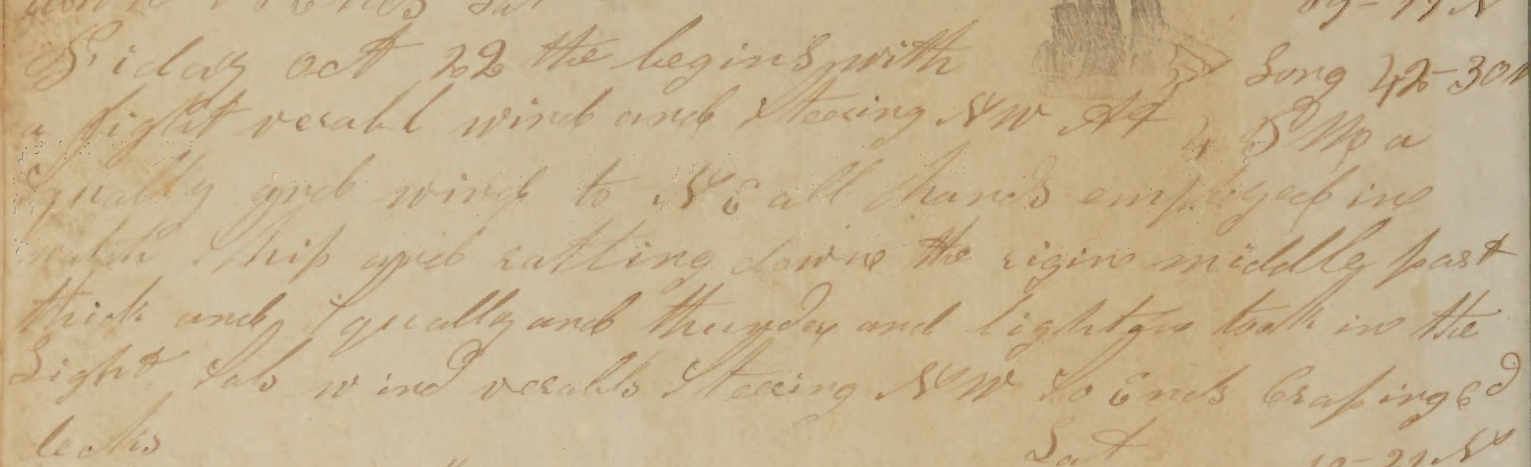 So Ends Lat
Friday oct 22 the begins with Long 42-30
a light verabl wind and Steering NW At 4 PM a
squally and wind to NE all hands employed in
ship and ratling downe the rigin middly part
thick and squally and thunder and lightgn took in the
Light sals wind verabls Steering NW So Ends Craping
decks Lat